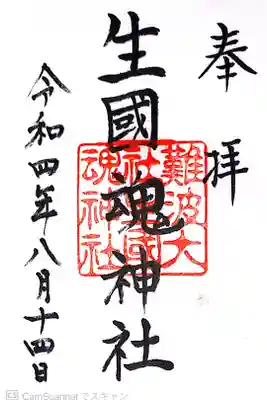 奉拝
生國魂神社
難波大社生國魂神社
令和四年八月十四日
CamScannerでスキャン